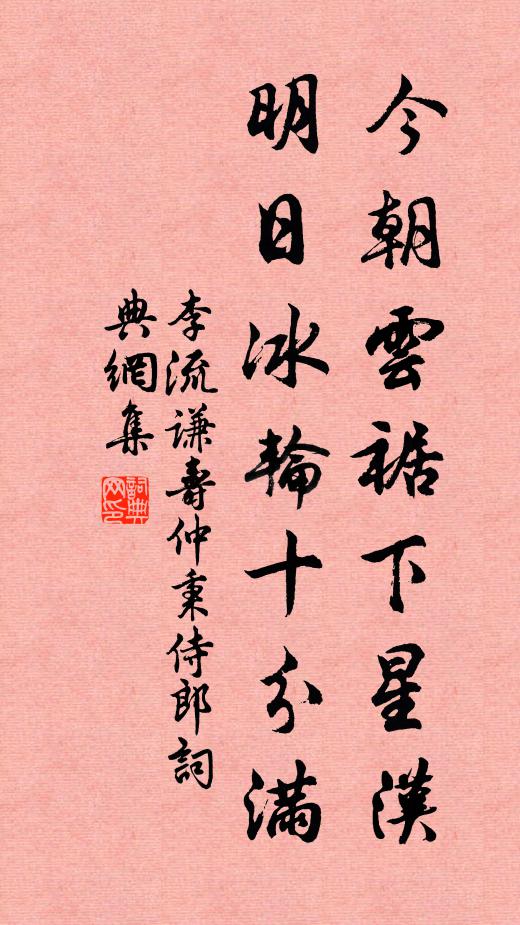 今朝雲裾下星漢
明日冰輪十分滿
李流謙壽仲秉侍郎詞
典網集
詞典網印